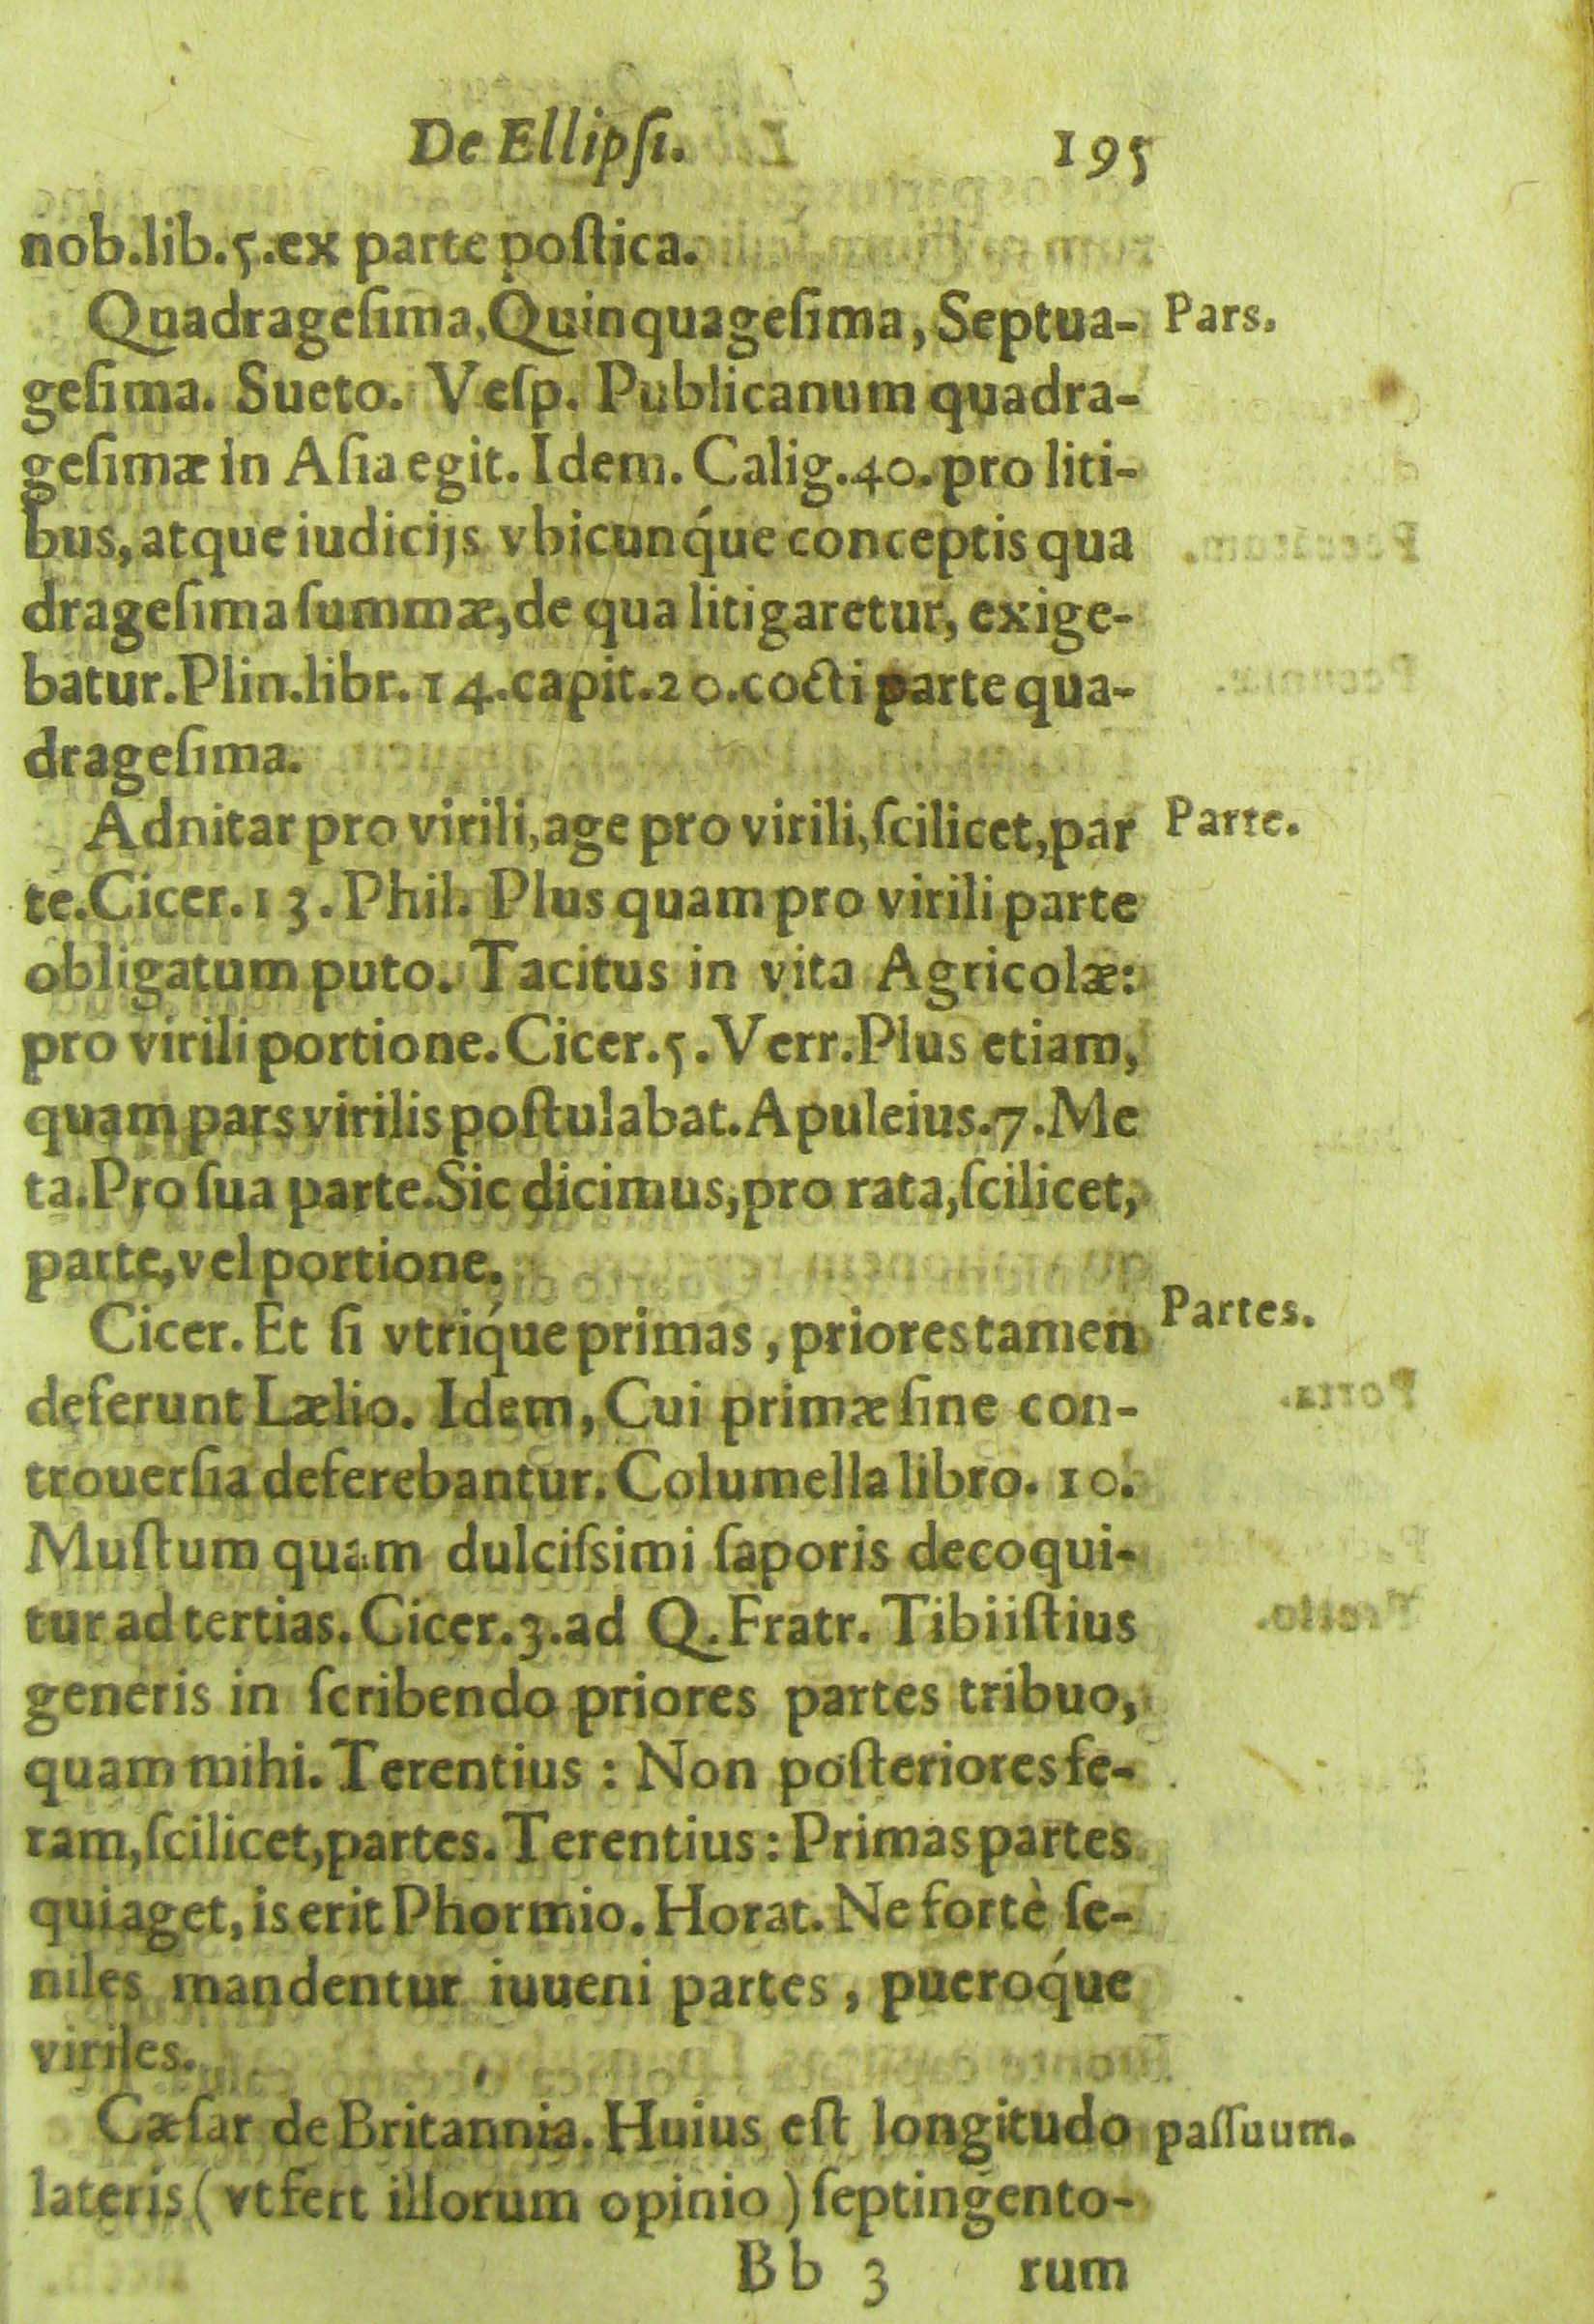 De Ellipſi. 195
nob.lib.5.ex parte poſtica.
Quadrageſima, Quinquageſima, Septua- Pars.
geſima. Sueto. Veſp. Publicanum quadra-
geſimæ in Aſia egit. Idem. Calig.40.pro liti-
bus, atque iudicijs vbicunq́ue conceptis qua
drageſima ſummæ, de qua litigaretur, exige-
batur. Plin.libr.14.capit.20.cocti parte qua-
drageſima.
Adnitar pro virili, age pro virili, ſcilicet, par Parte.
te. Cicer.13.Phil. Plus quam pro virili parte
obligatum puto. Tacitus in vita Agricolæ:
pro virili portione. Cicer.5.Verr. Plus etiam,
quam pars virilis poſtulabat. Apuleius.7.Me
ta. Pro ſua parte. Sic dicimus, pro rata, ſcilicet,
parte, vel portione.
Cicer. Et ſi vtriq́ue primas, priores tamen Partes.
deferunt Lælio. Idem, Cui primæ ſine con-
trouerſia deferebantur. Columella libro. 10.
Muſtum quam dulciſsimi ſaporis decoqui-
tur ad tertias. Cicer.3.ad Q. Fratr. Tibi iſtius
generis in ſcribendo priores partes tribuo,
quam mihi. Terentius : Non poſteriores fe-
ram, ſcilicet, partes. Terentius : Primas partes
qui aget, is erit Phormio. Horat. Ne fortè ſe-
niles mandentur iuueni partes, pueroq́ue
viriles.
Cæſar de Britannia. Huius eſt longitudo paſſuum.
lateris ( vt fert illorum opinio ) ſeptingento-
Bb 3 rum